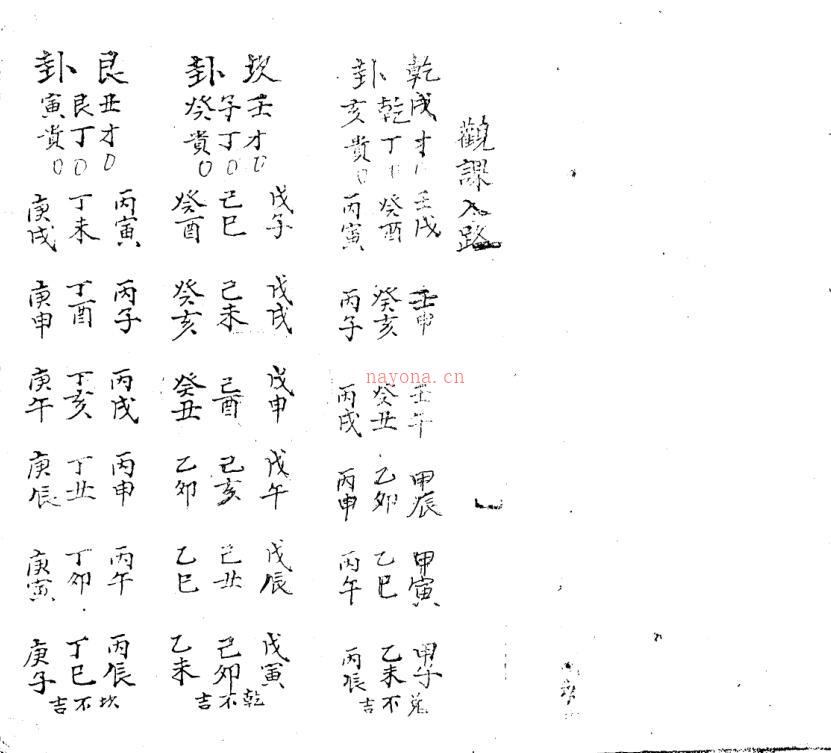 觀課入路
乾卦
戌才0 壬戌 壬申 壬午 甲辰 甲寅 甲子
乾丁0 癸酉 癸亥 癸丑 乙卯 乙巳 乙未
亥貴0 丙寅 丙子 丙戌 丙申 丙午 丙辰
兌不吉
坎卦
壬才0 戊子 戊戌 戊申 戊午 戊辰 戊寅
子丁0 己巳 己未 己酉 己亥 己丑 己卯
癸貴0 癸酉 癸亥 癸丑 乙卯 乙巳 乙未
乾不吉
艮卦
丑才0 丙寅 丙子 丙戌 丙申 丙午 丙辰
艮丁0 丁未 丁酉 丁亥 丁丑 丁卯 丁巳
寅貴0 庚戌 庚申 庚午 庚辰 庚寅 庚子
坎不吉
nayona.cn